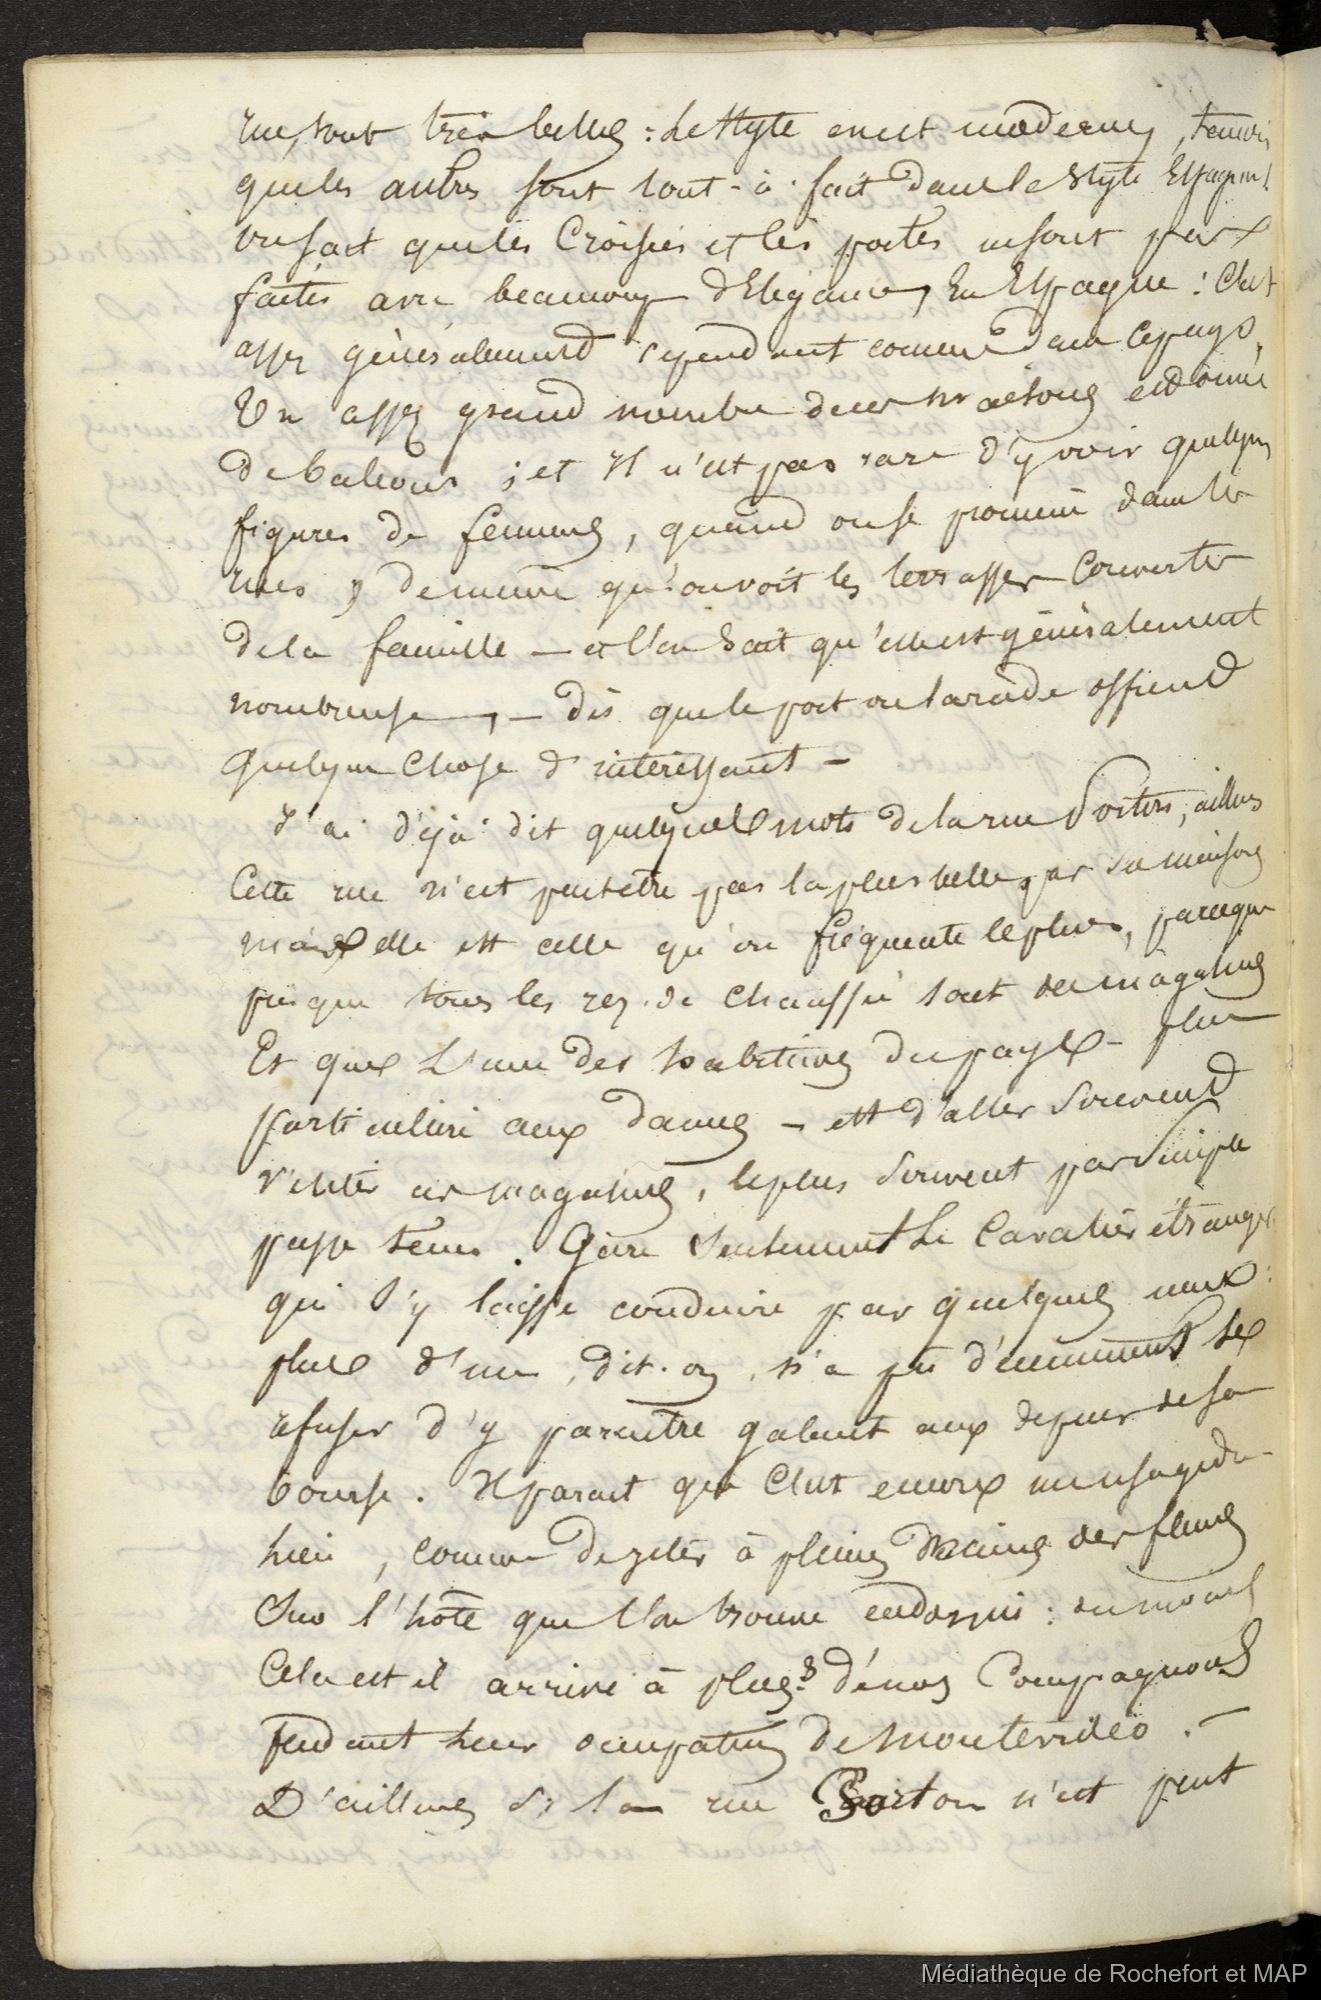 rue, sont très belles : le style en est moderne, tandis
que les autres sont tout-à-fait dans le style Espagnol
on sait que les Croisées et les portes ne sont pas
faites avec beaucoup d'Elégance, En Espagne : C'est
assez généralement cependant comme dans ce pays.
Un assez grand nombre de ces maisons est orné
de balcons ; et Il n'est pas rare d'y voir quelques
figures de femmes, quand on se promène dans les
rues ; de même qu'on voit les terrasses couvertes
de la famille — et l'on sait qu'elle est généralement
nombreuse, — dès que le port ou la rade offrent
quelque chose d'intéressant —
J'ai déjà dit quelques mots de la rue Porton, ailleurs
Cette rue n'est peut être pas la plus belle par sa maisons
mais elle est celle qu'on fréquente le plus, parceque
presque tous les rez-de chaussée sont des magasins
Et que l'une des habitudes du pays — plus
particulière aux dames — est d'aller souvent
visiter ces magasins, le plus souvent par simple
passe tems. Gare seulement le Cavalier étranger
qui s'y laisse conduire par quelques unes :
plus d'un, dit-on, n'a pu décemment se
refuser d'y paraître galant aux dépens de sa
bourse. Il parait que C'est encore un usage du
lieu, comme de jeter à pleines mains des fleurs
Sur l'hôte que l'on trouve endormi : du moins
Cela est il arrivé à plus.rs de nos Compagnons
pendant leur occupation de Montevideo. —
D'ailleurs si la rue Porton n'est peut
Médiathèque de Rochefort et MAP